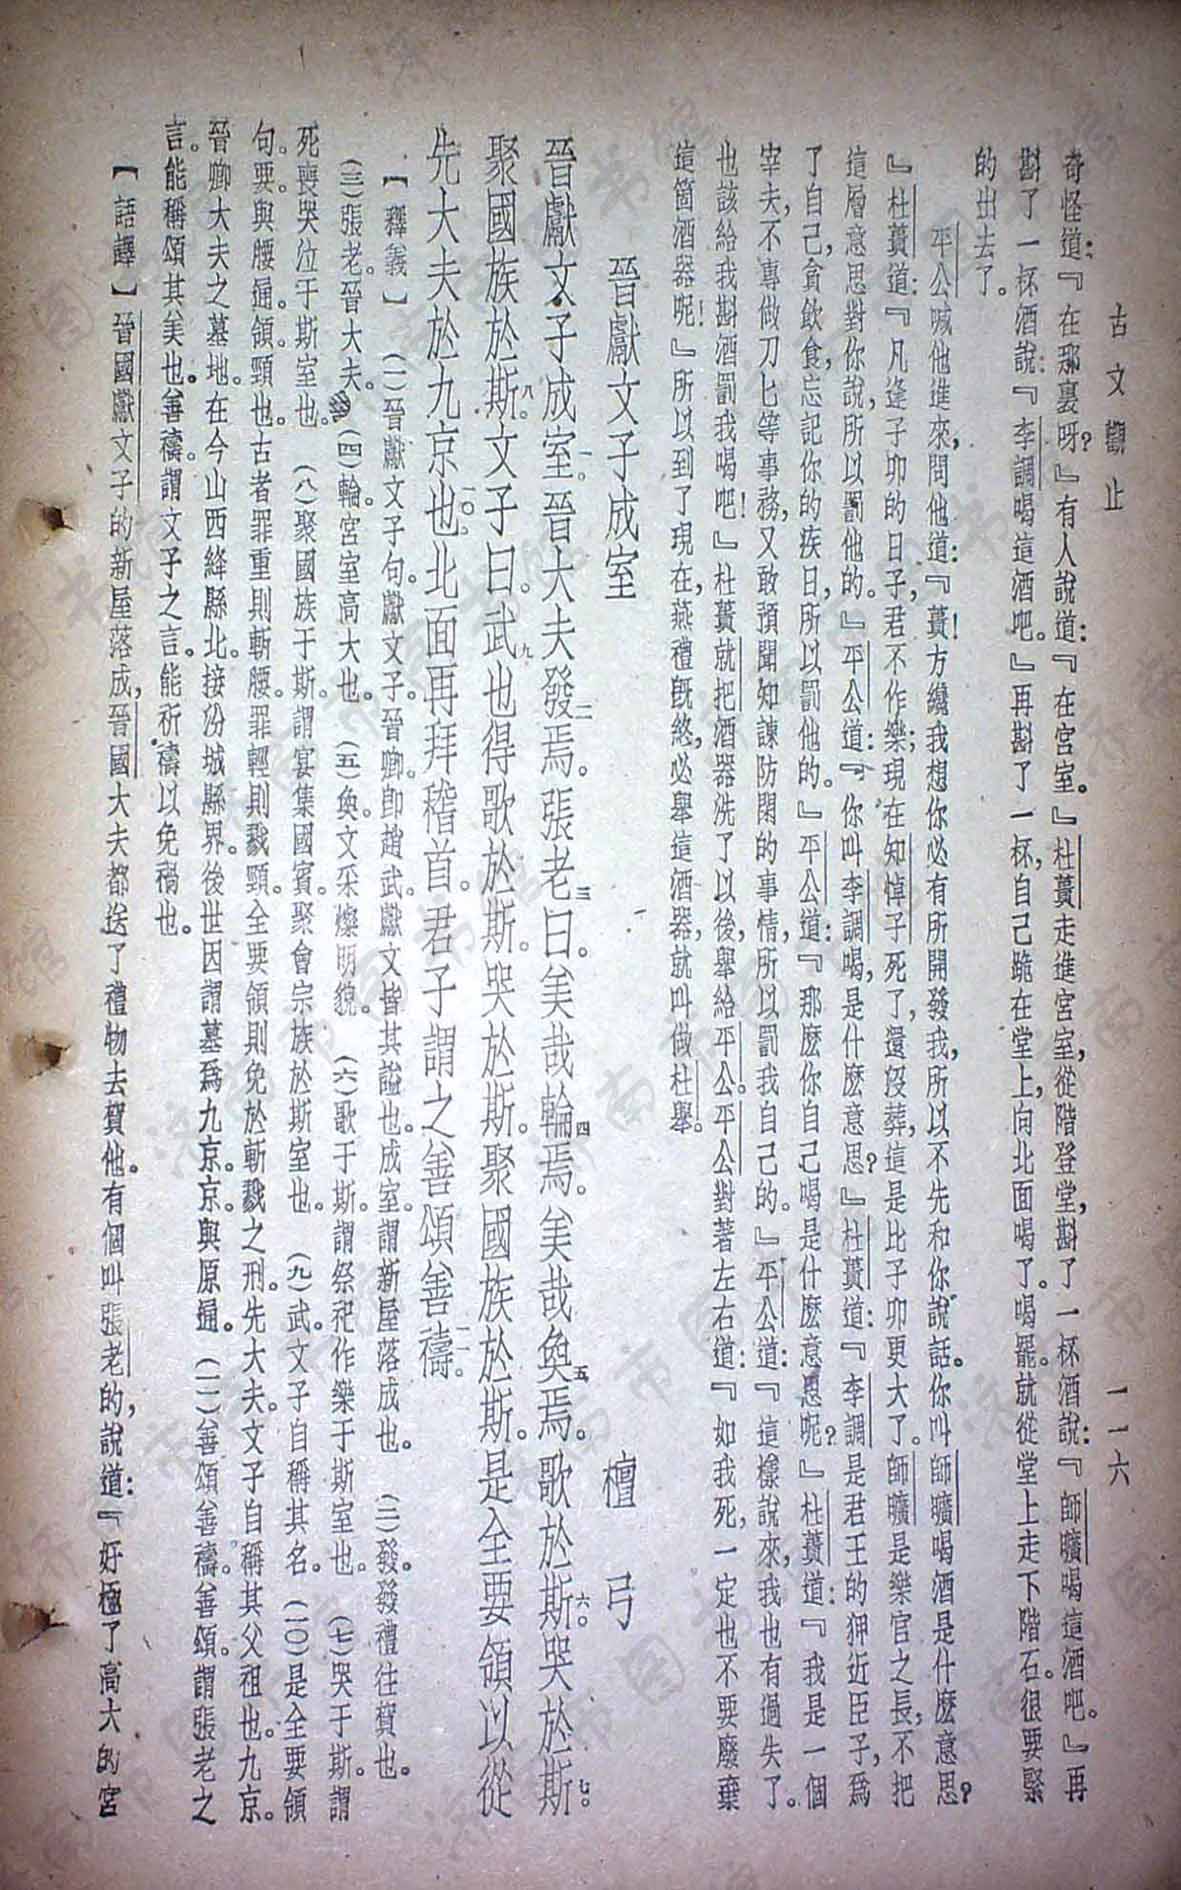 古文觀止
一一六
奇怪道：『在那裏呀？』有人說道：『在宮室。』杜蕢走進宮室，從階登堂，斟了一杯酒說：『師曠喝這酒吧。』再
斟了一杯酒說：『李調喝這酒吧。』再斟了一杯，自己跪在堂上，向北面喝了。喝罷。就從堂上走下階石。很要緊
的出去了。
平公喊他進來，問他道：『蕢！方纔我想你必有所開發我，所以不先和你說話。你叫師曠喝酒是什麽意思？
』杜蕢道：『凡逢子卯的日子，君不作樂；現在知悼子死了，還沒葬，這是比子卯更大了。師曠是樂官之長，不把
這層意思對你說，所以罰他的。』平公道：『你叫李調喝，是什麽意思？』杜蕢道：『李調是君王的狎近臣子，爲
了自己，貪飲食，忘記你的疾日，所以罰他的。』平公道：『那麽你自己喝是什麽意思呢？』杜蕢道：『我是一個
宰夫，不專做刀匕等事務，又敢預聞知諫防閑的事情，所以罰我自己的。』平公道：『這樣說來，我也有過失了。
也該給我斟酒罰我喝吧！』杜蕢就把酒器洗了以後，舉給平公。平公對著左右道：『如我死，一定也不要廢棄
這箇酒器呢！』所以到了現在，燕禮既終，必舉這酒器，就叫做杜舉。
晉獻文子成室
檀弓
晉獻文子成室。一晉大夫發二焉。張老三曰。美哉輪四焉。美哉奐五焉。歌於斯。六哭於斯。七
聚國族於斯。八文子曰。武九也得歌於斯。哭於斯。聚國族於斯。是全要領以從
先大夫於九京也。一〇北面再拜稽首。君子謂之善頌善禱。一一
【釋義】（一）晉獻文子句。獻文子。晉卿。卽趙武。獻文皆其謚也。成室。謂新屋落成也。（二）發。發禮往賀也。
（三）張老。晉大夫。（四）輪。宮室高大也。（五）奐。文采燦明貌。（六）歌于斯。謂祭祀作樂于斯室也。（七）哭于斯。謂
死喪哭泣于斯室也。（八）聚國族于斯。謂宴集國賓。聚會宗族於斯室也。（九）武。文子自稱其名。（一〇）是全要領
句。要。與腰通。領。頸也。古者罪重則斬腰。罪輕則戮頸。全要領則免於斬戮之刑。先大夫。文子自稱其父祖也。九京。
晉卿大夫之墓地。在今山西絳縣北。接汾城縣界。後世因謂墓爲九京。京。與原通。（一一）善頌善禱。善頌。謂張老之
言。能稱頌其美也。善禱。謂文子之言。能祈禱以免禍也。
【語譯】晉國獻文子的新屋落成，晉國大夫都送了禮物去賀他。有個叫張老的，說道：『好極了高大的宮